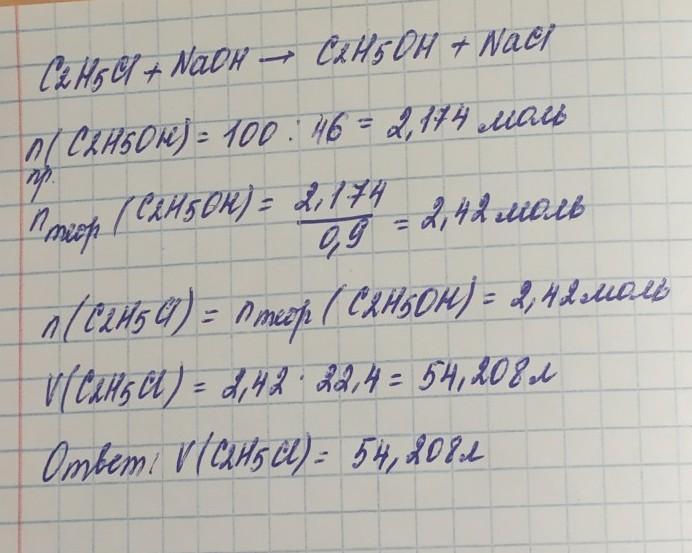 C2H5Cl + NaOH → C2H5OH + NaCl
nпр. (C2H5OH) = 100 : 46 = 2,174 моль
nтеор (C2H5OH) = 2,174 / 0,9 = 2,42 моль
n(C2H5Cl) = nтеор (C2H5OH) = 2,42 моль
V(C2H5Cl) = 2,42 · 22,4 = 54,208 л
Ответ: V(C2H5Cl) = 54,208 л